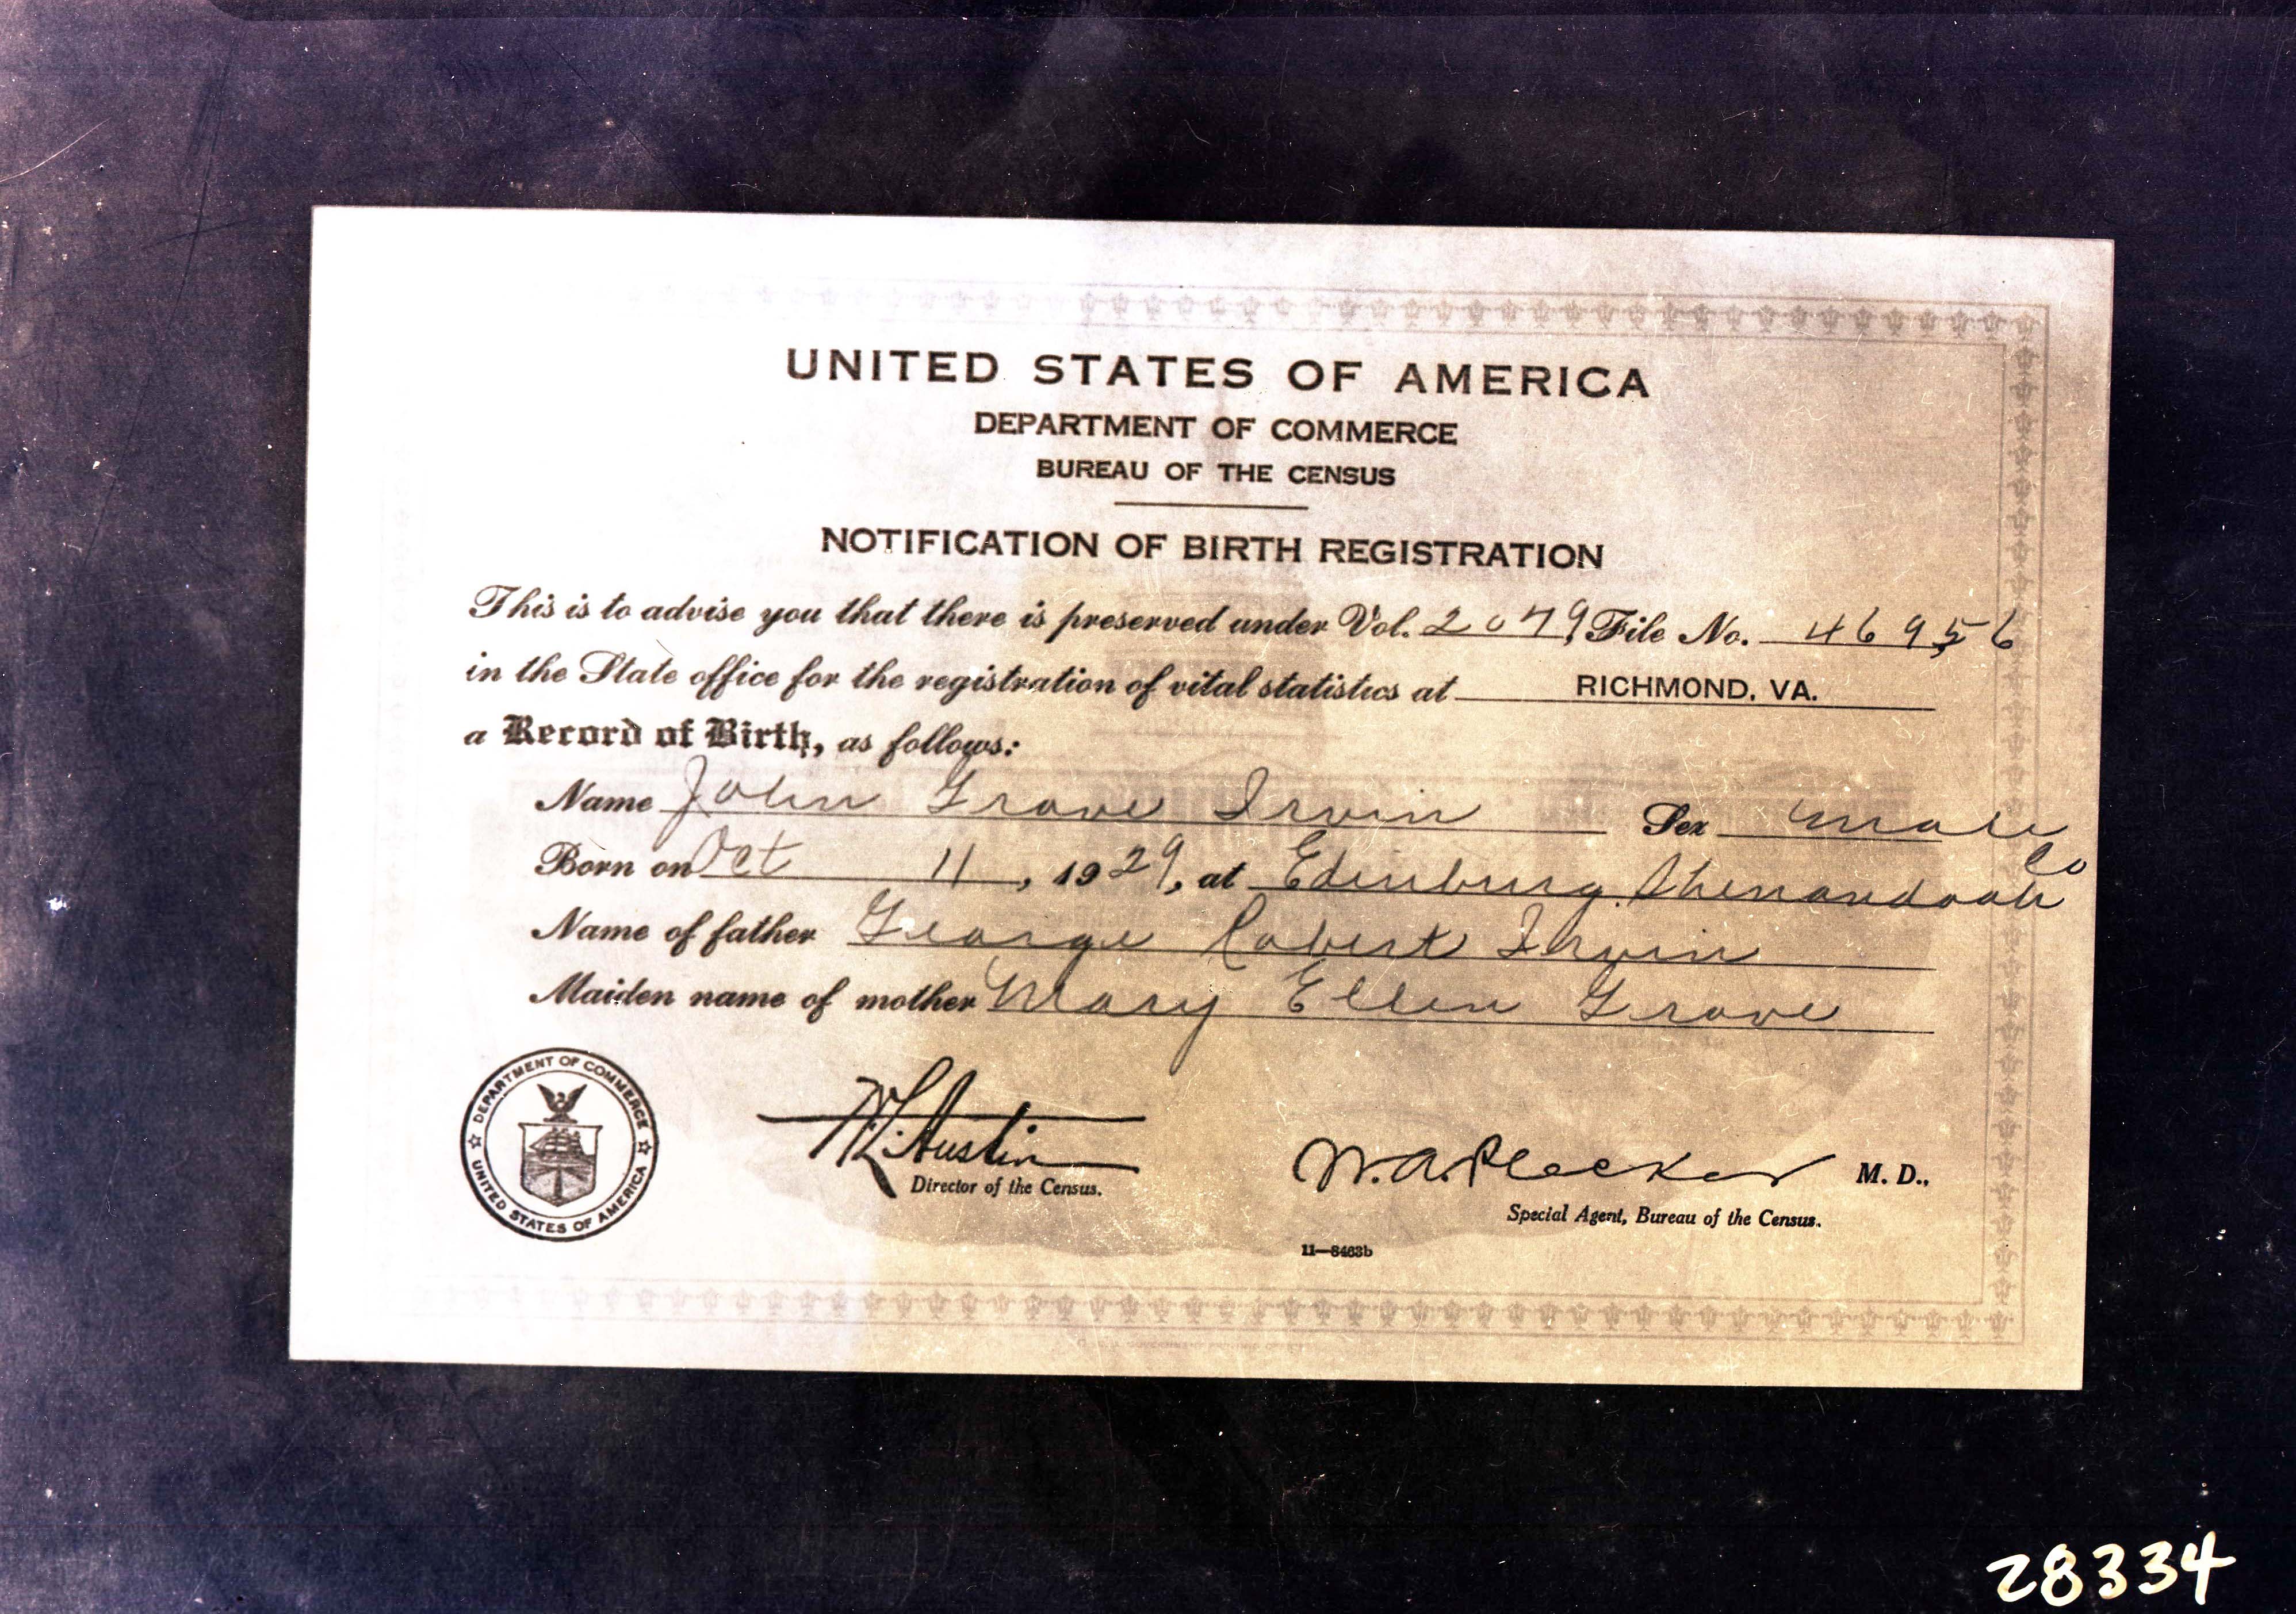 UNITED STATES OF AMERICA
DEPARTMENT OF COMMERCE
BUREAU OF THE CENSUS
NOTIFICATION OF BIRTH REGISTRATION
This is to advise you that there is preserved under Vol. 2079 File No. 46956
in the State office for the registration of vital statistics at RICHMOND, VA.
a Record of Birth, as follows:
Name John Grove Irvin Sex male
Born on Oct 11, 1929, at Edinburg Shenandoah Co
Name of father George Robert Irvin
Maiden name of mother Mary Ellen Grove
DEPARTMENT OF COMMERCE
UNITED STATES OF AMERICA
W. L. Austin
Director of the Census.
W. A. Plecker M. D.,
Special Agent, Bureau of the Census.
11—8463b
28334